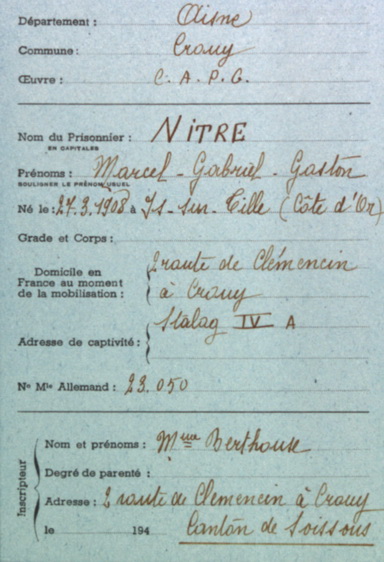 Département : Aisne
Commune : Crouy
Œuvre : C. A. P. G.
Nom du Prisonnier : NITRE
EN CAPITALES
Prénoms : Marcel - Gabriel - Gaston
SOULIGNER LE PRÉNOM USUEL
Né le : 27.3.1908 à Is-sur-Tille (Côte d'Or)
Grade et Corps :
Domicile en
France au moment
de la mobilisation :
2 route de Clémencin
à Crouy
Adresse de captivité :
Stalag IV A
Nº Mle Allemand : 23.050
Inscripteur
Nom et prénoms : Mme
Degré de parenté :
Adresse : 2 route de Clemencin à Crouy
le 194 Canton de Soissons